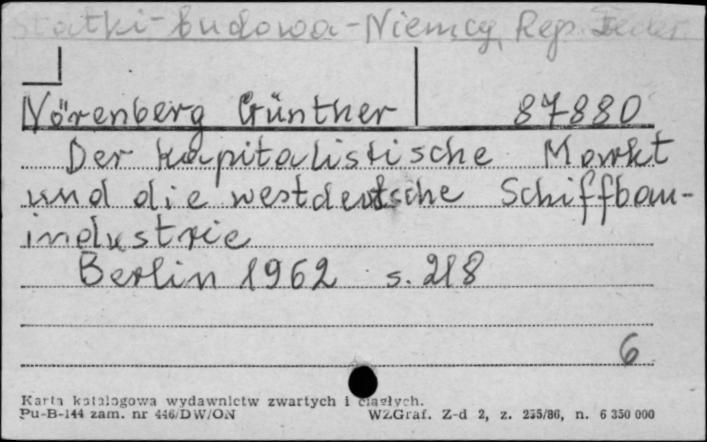 Statki-budowa-Niemcy, Rep. Feder.
Nörenberg Günther 87880
Der kapitalistische Markt
und die westdeutsche Schiffbau-
industrie
Berlin 1962 s. 218
6
Karta katalogowa wydawnictw zwartych i ciągłych.
Pu-B-144 zam. nr 446/DW/ON WZGraf. Z-d 2, z. 235/86, n. 6 350 000